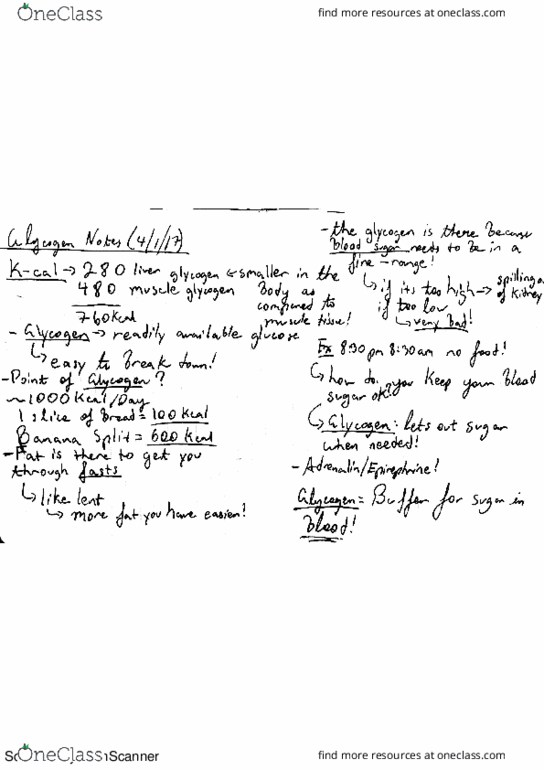 OneClass
find more resources at oneclass.com
Glycogen Notes (4/1/17)
K-cal → 280 liver glycogen ← smaller in the
480 muscle glycogen Body as
compared to
760 Kcal muscle tissue!
- Glycogen → readily available glucose
↳ easy to Break down!
- Point of Glycogen?
~1000 Kcal/Day
1 slice of Bread = 100 Kcal
Banana Split = 600 Kcal
- Fat is there to get you
through fasts
↳ like lent
↳ more fat you have easier!
- the glycogen is there Because
blood sugar needs to be in a
fine-range!
↳ if its too high → spilling
of Kidney
if too low
↳ very Bad!
Ex 8:30 pm 8:30 am no food!
↳ how do you Keep your Blood
sugar ok?
↳ Glycogen: lets out sugar
when needed!
- Adrenalin/Epinephrine!
Glycogen = Buffer for sugar in
Blood!
OneClass
Scanner
find more resources at oneclass.com